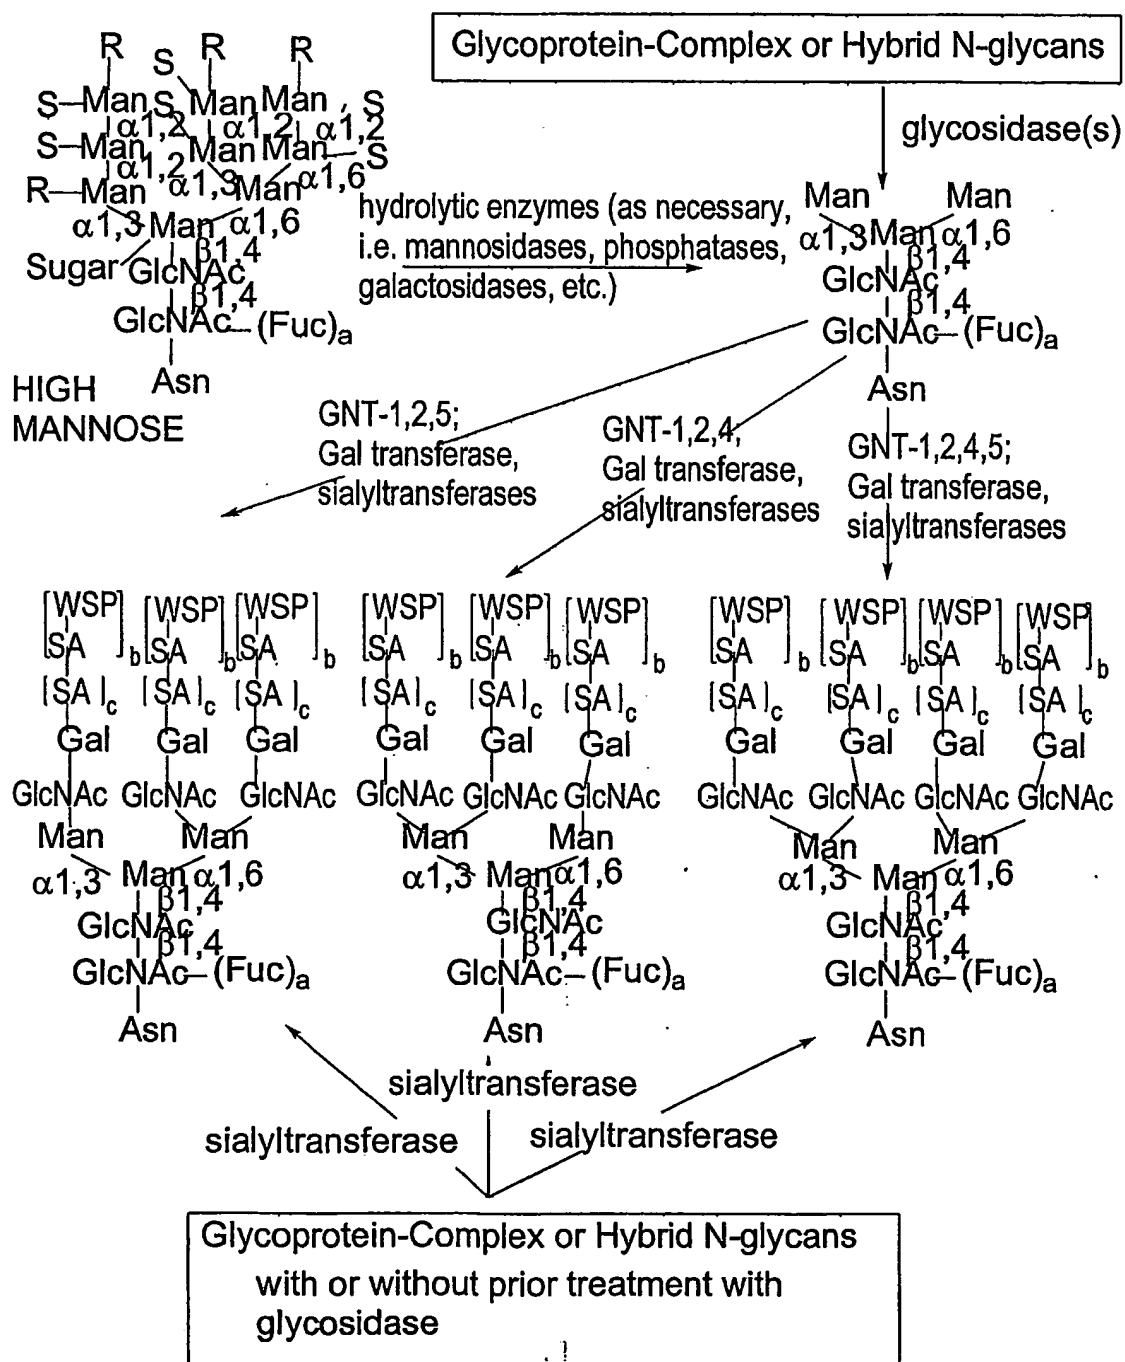 Glycoprotein-Complex or Hybrid N-glycans
glycosidase(s)
R S R R
S–Man S Man Man S
α1,2 α1,2 α1,2
S–Man Man Man S
α1,2 α1,3 α1,6
R–Man Man
α1,3 Man α1,6
β1,4
Sugar GlcNAc
β1,4
GlcNAc–(Fuc)a
Asn
HIGH
MANNOSE
hydrolytic enzymes (as necessary,
i.e. mannosidases, phosphatases,
galactosidases, etc.)
Man Man
α1,3 Man α1,6
β1,4
GlcNAc
β1,4
GlcNAc–(Fuc)a
Asn
GNT-1,2,5;
Gal transferase,
sialyltransferases
GNT-1,2,4;
Gal transferase,
sialyltransferases
GNT-1,2,4,5;
Gal transferase,
sialyltransferases
[WSP] [WSP] [WSP]
[SA]b [SA]b [SA]b
[SA]c [SA]c [SA]c
Gal Gal Gal
GlcNAc GlcNAc GlcNAc
Man Man
α1,3 Man α1,6
β1,4
GlcNAc
β1,4
GlcNAc–(Fuc)a
Asn
[WSP] [WSP] [WSP]
[SA]b [SA]b [SA]b
[SA]c [SA]c [SA]c
Gal Gal Gal
GlcNAc GlcNAc GlcNAc
Man Man
α1,3 Man α1,6
β1,4
GlcNAc
β1,4
GlcNAc–(Fuc)a
Asn
[WSP] [WSP] [WSP] [WSP]
[SA]b [SA]b [SA]b [SA]b
[SA]c [SA]c [SA]c [SA]c
Gal Gal Gal Gal
GlcNAc GlcNAc GlcNAc GlcNAc
Man Man
α1,3 Man α1,6
β1,4
GlcNAc
β1,4
GlcNAc–(Fuc)a
Asn
sialyltransferase
sialyltransferase sialyltransferase
Glycoprotein-Complex or Hybrid N-glycans
with or without prior treatment with
glycosidase